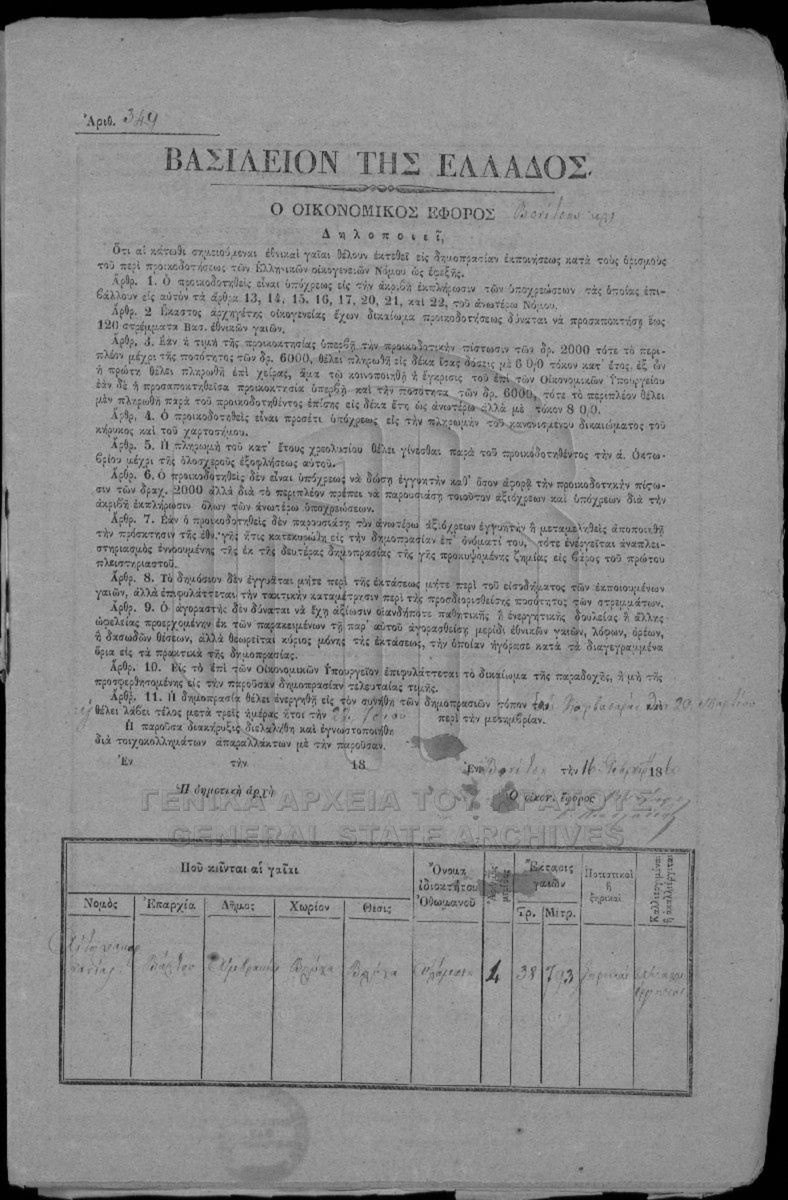 Ἀριθ. 349
ΒΑΣΙΛΕΙΟΝ ΤΗΣ ΕΛΛΑΔΟΣ.
Ο ΟΙΚΟΝΟΜΙΚΟΣ ΕΦΟΡΟΣ Βονίτσης
Δηλοποιεῖ,
Ὅτι αἱ κάτωθι σημειούμεναι ἐθνικαὶ γαῖαι θέλουν ἐκτεθεῖ εἰς δημοπρασίαν ἐκποιήσεως κατὰ τοὺς ὁρισμοὺς
τοῦ περὶ προικοδοτήσεως τῶν Ἑλληνικῶν οἰκογενειῶν Νόμου ὡς ἐφεξῆς.
Ἄρθρ. 1. Ὁ προικοδοτηθεὶς εἶναι ὑπόχρεως εἰς τὴν ἀκριβῆ ἐκπλήρωσιν τῶν ὑποχρεώσεων τὰς ὁποίας ἐπι-
βάλλουν εἰς αὐτὸν τὰ ἄρθρα 13, 14, 15, 16, 17, 20, 21, καὶ 22, τοῦ ἀνωτέρω Νόμου.
Ἄρθρ. 2 Ἕκαστος ἀρχηγέτης οἰκογενείας ἔχων δικαίωμα προικοδοτήσεως δύναται νὰ προσαποκτήσῃ ἕως
120 στρέμματα Βασ. ἐθνικῶν γαιῶν.
Ἄρθρ. 3. Ἐὰν ἡ τιμὴ τῆς προικοκτησίας ὑπερβῇ τὴν προικοδοτικὴν πίστωσιν τῶν δρ. 2000 τότε τὸ περι-
πλέον μέχρι τῆς ποσότητος τῶν δρ. 6000, θέλει πληρωθῆ εἰς δέκα ἴσας δόσεις μὲ 6 0|0 τόκον κατ' ἔτος, ἐξ ὧν
ἡ πρώτη θέλει πληρωθῆ ἐπὶ χείρας, ἅμα τῷ κοινοποιηθῇ ἡ ἔγκρισις τοῦ ἐπὶ τῶν Οἰκονομικῶν Ὑπουργείου
ἐὰν δὲ ἡ προσαποκτηθεῖσα προικοκτησία ὑπερβῇ καὶ τὴν ποσότητα τῶν δρ. 6000, τότε τὸ περιπλέον θέλει
μὲν πληρωθῆ παρὰ τοῦ προικοδοτηθέντος ἐπίσης εἰς δέκα ἔτη ὡς ἀνωτέρω ἀλλὰ μὲ τόκον 8 0|0.
Ἄρθρ. 4. Ὁ προικοδοτηθεὶς εἶναι προσέτι ὑπόχρεως εἰς τὴν πληρωμὴν τοῦ κανονισμένου δικαιώματος τοῦ
κήρυκος καὶ τοῦ χαρτοσήμου.
Ἄρθρ. 5. Ἡ πληρωμὴ τοῦ κατ' ἔτους χρεολυσίου θέλει γίνεσθαι παρὰ τοῦ προικοδοτηθέντος τὴν ά. Ὀκτω-
βρίου μέχρι τῆς ὁλοσχεροῦς ἐξοφλήσεως αὐτοῦ.
Ἄρθρ. 6. Ὁ προικοδοτηθεὶς δὲν εἶναι ὑπόχρεως νὰ δώσῃ ἐγγυητὴν καθ' ὅσον ἀφορᾷ τὴν προικοδοτικὴν πίστω-
σιν τῶν δραχ. 2000 ἀλλὰ διὰ τὸ περιπλέον πρέπει νὰ παρουσιάσῃ τοιοῦτον ἀξιόχρεων καὶ ὑπόχρεων διὰ τὴν
ἀκριβῆ ἐκπλήρωσιν ὅλων τῶν ἀνωτέρω ὑποχρεώσεων.
Ἄρθρ. 7. Ἐὰν ὁ προικοδοτηθεὶς δὲν παρουσιάσῃ τὸν ἀνωτέρω ἀξιόχρεων ἐγγυητὴν ἢ μεταμεληθεὶς ἀποποιηθῇ
τὴν πρόσκτησιν τῆς ἐθν. γῆς ἥτις κατεκυρώθη εἰς τὴν δημοπρασίαν ἐπ' ὀνόματί του, τότε ἐνεργεῖται ἀναπλει-
στηριασμὸς ἐννοουμένης τῆς ἐκ τῆς δευτέρας δημοπρασίας τῆς γῆς προκυψομένης ζημίας εἰς βάρος τοῦ πρώτου
πλειστηριαστοῦ.
Ἄρθρ. 8. Τὸ δημόσιον δὲν ἐγγυᾶται μήτε περὶ τῆς ἐκτάσεως μήτε περὶ τοῦ εἰσοδήματος τῶν ἐκποιουμένων
γαιῶν, ἀλλὰ ἐπιφυλάττεται τὴν τακτικὴν καταμέτρησιν περὶ τῆς προσδιορισθείσης ποσότητος τῶν στρεμμάτων.
Ἄρθρ. 9. Ὁ ἀγοραστὴς δὲν δύναται νὰ ἔχῃ ἀξίωσιν οἱανδήποτε παθητικῆς ἢ ἐνεργητικῆς δουλείας ἢ ἄλλης
ὠφελείας προερχομένην ἐκ τῶν παρακειμένων τῇ παρ' αὐτοῦ ἀγορασθείσῃ μερίδι ἐθνικῶν γαιῶν, λόφων, ὀρέων,
ἢ δασωδῶν θέσεων, ἀλλὰ θεωρεῖται κύριος μόνης τῆς ἐκτάσεως, τὴν ὁποίαν ἠγόρασε κατὰ τὰ διαγεγραμμένα
ὅρια εἰς τὰ πρακτικὰ τῆς δημοπρασίας.
Ἄρθρ. 10. Εἰς τὸ ἐπὶ τῶν Οἰκονομικῶν Ὑπουργεῖον ἐπιφυλάττεται τὸ δικαίωμα τῆς παραδοχῆς, ἢ μὴ τῆς
προσφερθησομένης εἰς τὴν παροῦσαν δημοπρασίαν τελευταίας τιμῆς.
Ἄρθρ. 11. Ἡ δημοπρασία θέλει ἐνεργηθῆ εἰς τὸν συνήθη τῶν δημοπρασιῶν τόπον τοῦ τὴν 20 Μαρτίου
θέλει λάβει τέλος μετὰ τρεῖς ἡμέρας ἤτοι τὴν περὶ τὴν μεσημβρίαν.
Ἡ παροῦσα διακήρυξις διελαλήθη καὶ ἐγνωστοποιήθη
διὰ τοιχοκολλημάτων ἀπαραλλάκτων μὲ τὴν παροῦσαν.
Ἐν τὴν 18 Ἐν Βονίτσῃ τὴν 16 186
Ἡ δημοτικὴ ἀρχὴ Ὁ οἰκον. ἔφορος
ΓΕΝΙΚΑ ΑΡΧΕΙΑ ΤΟΥ ΚΡΑΤΟΥΣ
GENERAL STATE ARCHIVES
Ποῦ κεῖνται αἱ γαῖαι
Ὄνομα ἰδιοκτήτου Ὀθωμανοῦ
Ἔκτασις γαιῶν
Ποτιστικαὶ ἢ ξηρικαί
Καλλιεργημέναι ἢ ἀκαλλιέργηται
Νομὸς Ἐπαρχία Δῆμος Χωρίον Θέσις Στρ. Μέτρ.
Βάλτου Ἀμβρακίας 1 38 793 ξηρικαὶ